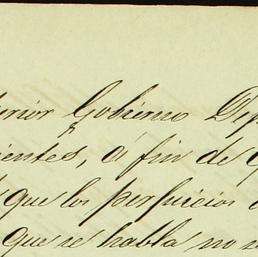 erior Gobierno Dep
ientes, á fin de q
que los perjuicios
que se habla no